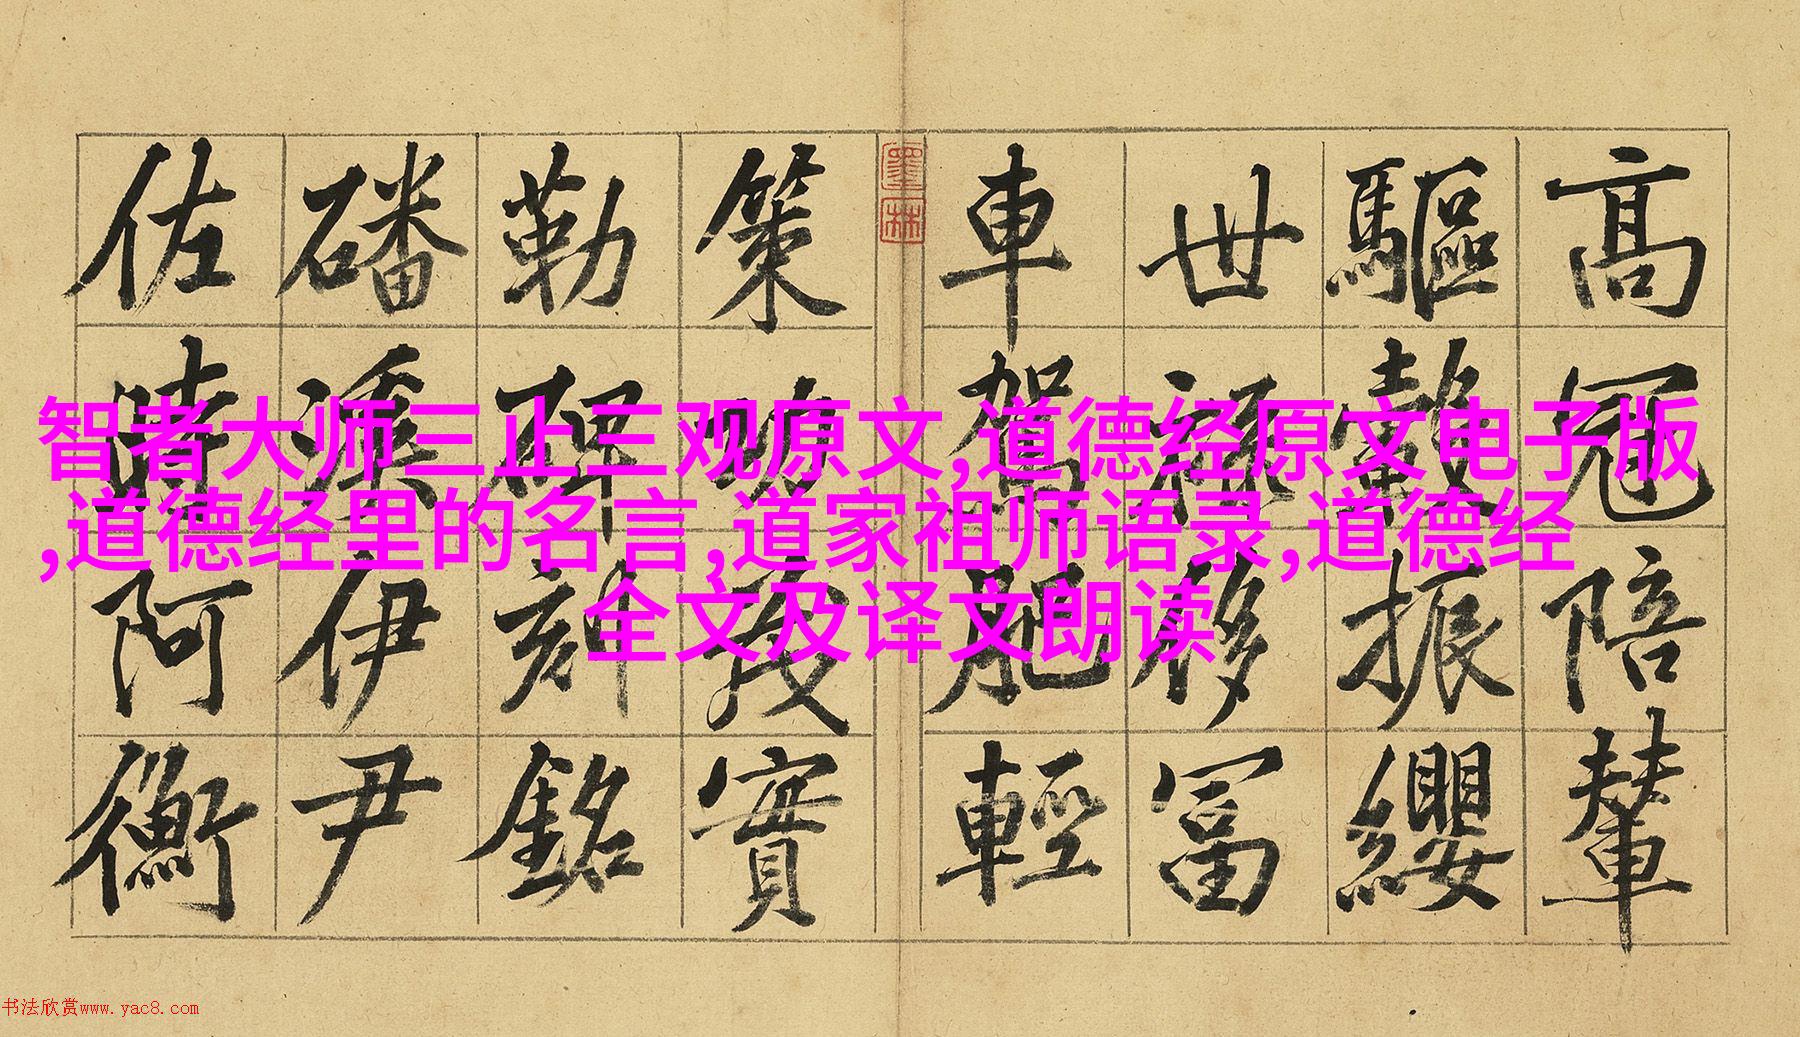 高冠陪輦
驅轂振纓
世祿侈富
車駕肥輕
墨林
策功茂實
勒碑刻銘
磻溪伊尹
佐時阿衡
智者大师三止三观原文,道德经原文电子版
,道德经里的名言,道家祖师语录,道德经
全文及译文朗读
书法欣赏www.yac8.com